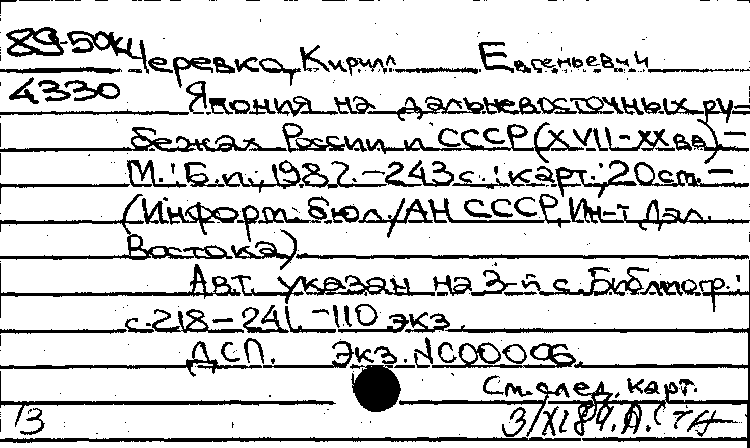 89-50к Черевко, Кирилл Евгеньевич
4330 Япония на дальневосточных ру-
бежах России и СССР (XVII-XX вв). -
М.: Б.и., 1987. - 243 с.: карт.; 20 см. -
(Информ. бюл. / АН СССР, Ин-т Дал.
Востока).
Авт. указан на 3-й с. Библиогр.:
с. 218-241. - 110 экз.
ДСП. Экз. N 00006.
См. след. карт.
13 3/XI 89.